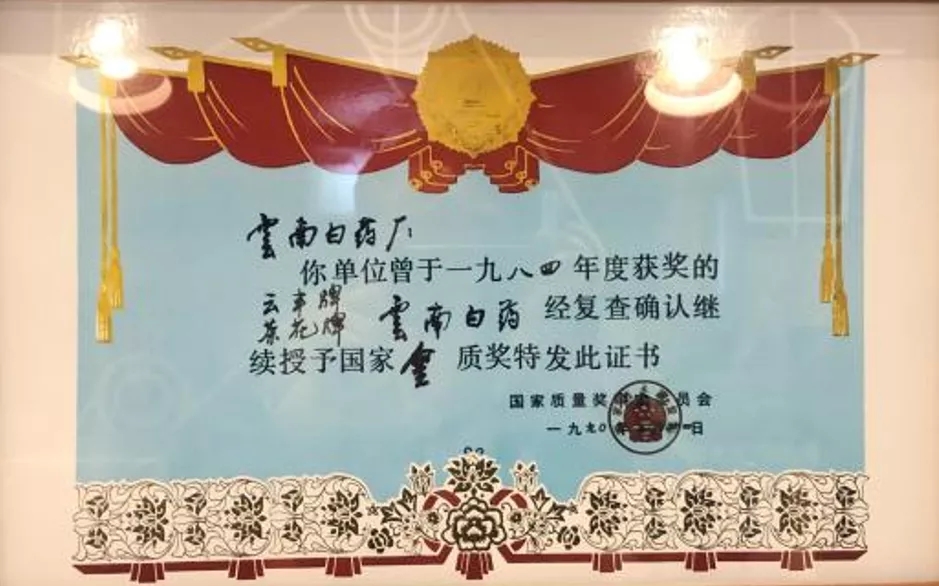 雲南白药厂:
你单位曾于一九八四年度获奖的
云丰牌
茶花牌 雲南白药 经复查确认继
续授予国家金质奖特发此证书
国家质量奖审定委员会
一九九〇年 日